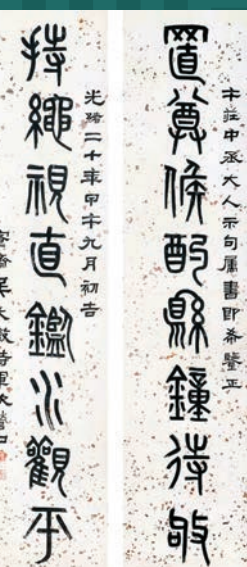 莊中丞大人示句屬書即希鑒正
置尊候酌縣鐘待敂
光緒二十年甲午九月初吉
持繩視直鑑水觀平
愙齋吳大澂時軍次營口